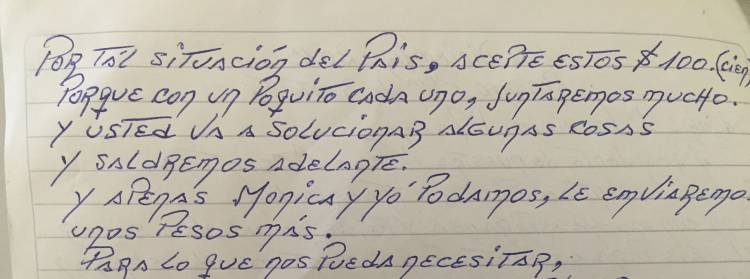 POR TAL SITUACIÓN del PAIS, ACEPTE ESTOS $ 100. (cien)
PORQUE CON UN POQUITO CADA UNO, JUNTAREMOS MUCHO.
Y USTED VA A SOLUCIONAR ALGUNAS COSAS
Y SALDREMOS ADELANTE.
Y APENAS MONICA Y YÓ PODAMOS, LE EMVIAREMO
UNOS PESOS MÁS.
PARA LO QUE NOS PUEDA NECESITAR,